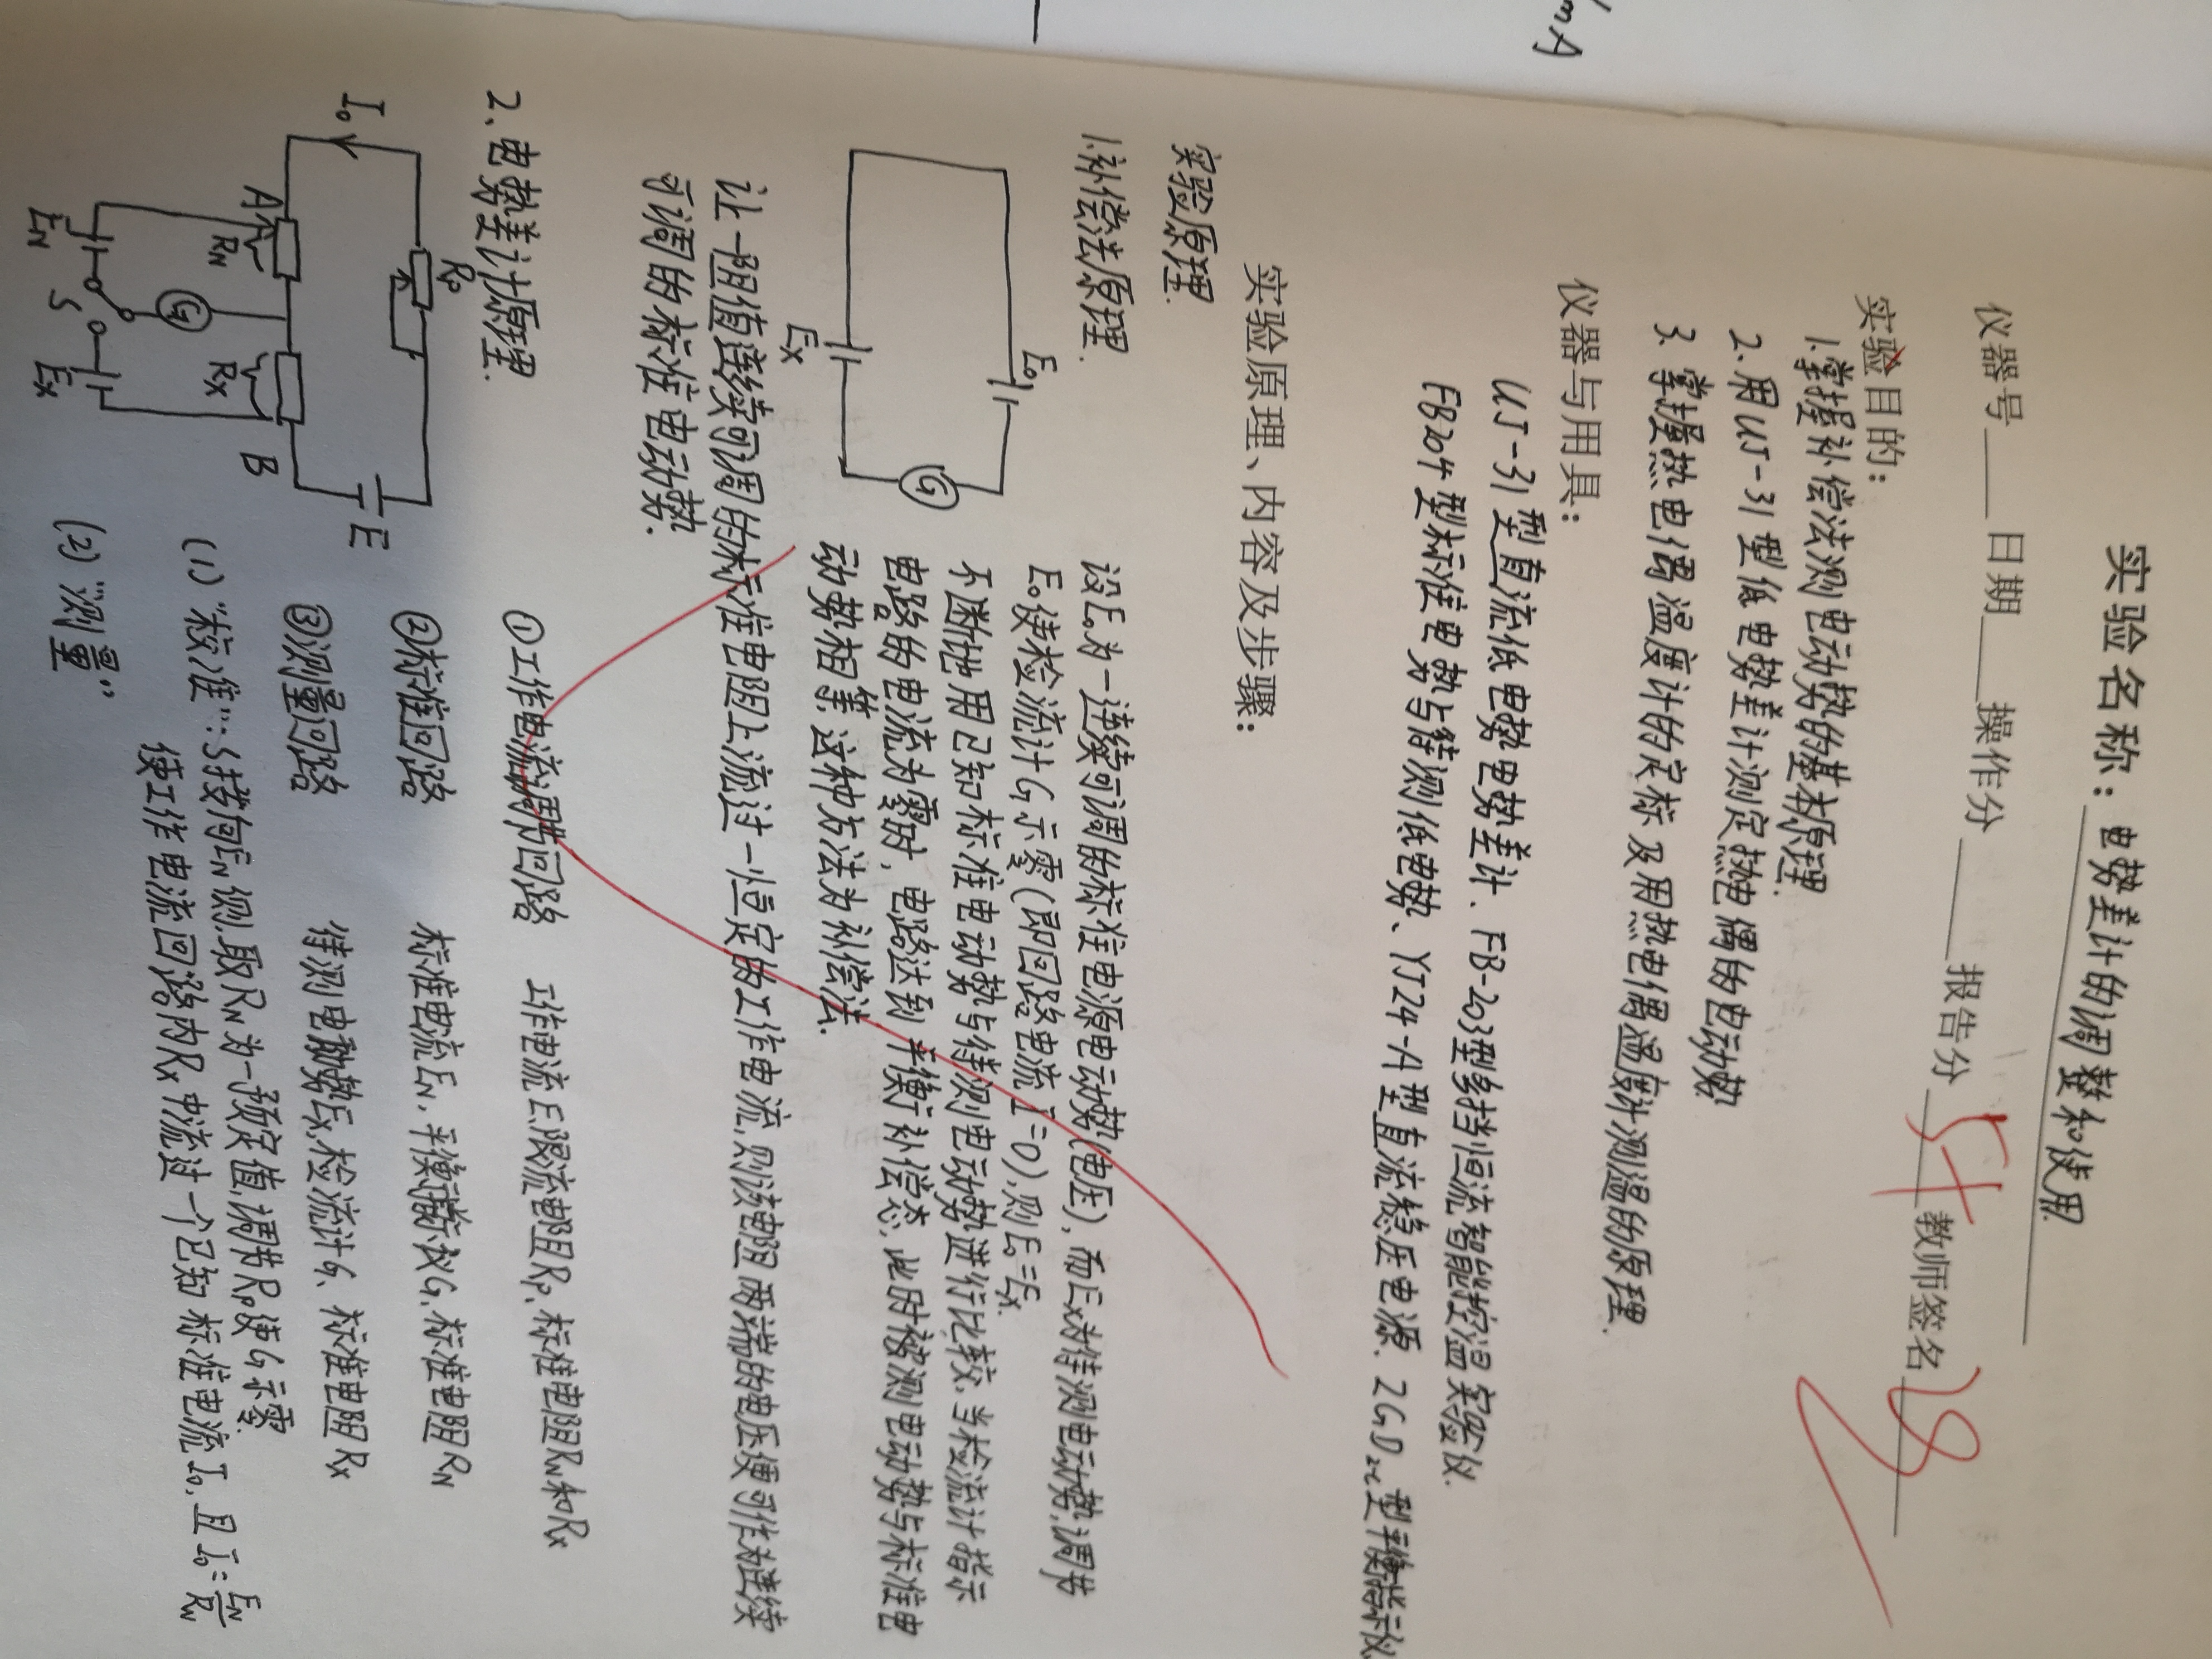 mA
实验名称：电势差计的调整和使用
仪器号____日期____操作分____报告分____教师签名____
54
实验目的：
1.掌握补偿法测电动势的基本原理.
2.用UJ-31型低电势差计测定热电偶的电动势
3.掌握热电偶温度计的定标及用热电偶温度计测温的原理.
仪器与用具：
UJ-31型直流低电势电势差计、FB-203型多挡恒流智能控温实验仪.
FB204型标准电势与待测低电势、YJ24-A型直流稳压电源、ZGD型平衡指示仪
实验原理、内容及步骤：
实验原理.
1.补偿法原理.
E₀
G
Ex
设E₀为一连续可调的标准电源电动势(电压),而Ex为待测电动势,调节
E₀使检流计G示零(即回路电流I=0),则E₀=Ex.
不断地用已知标准电动势与待测电动势进行比较,当检流计指示
电路的电流为零时,电路达到平衡补偿态,此时被测电动势与标准电
动势相等,这种方法为补偿法.
让一阻值连续可调的标准电阻上流过一恒定的工作电流,则该电阻两端的电压便可作为连续
可调的标准电动势.
2.电势差计原理.
I₀
Rp
E
A
RN
Rx
B
G
EN
S
Ex
①工作电流调节回路 工作电流E.限流电阻Rp、标准电阻RN和Rx
②标准回路 标准电流EN,平衡指示仪G,标准电阻RN
③测量回路 待测电动势Ex,检流计G、标准电阻Rx
(1)"校准":S拨向EN侧,取RN为一预定值,调节Rp使G示零.
使工作电流回路内Rx中流过一个已知标准电流I₀,且I₀=EN/RN
(2)"测量"